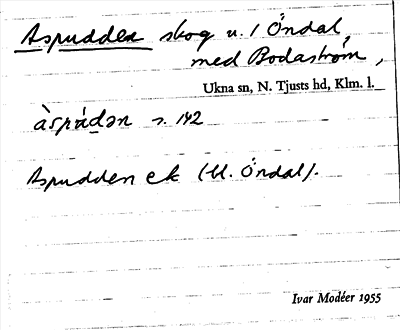 Aspudden skog u. / Öndal,
med Bodaström,
Ukna sn, N. Tjusts hd, Klm. l.
àspúdən s. 142
Aspudden ek (U. Öndal).
Ivar Modéer 1955